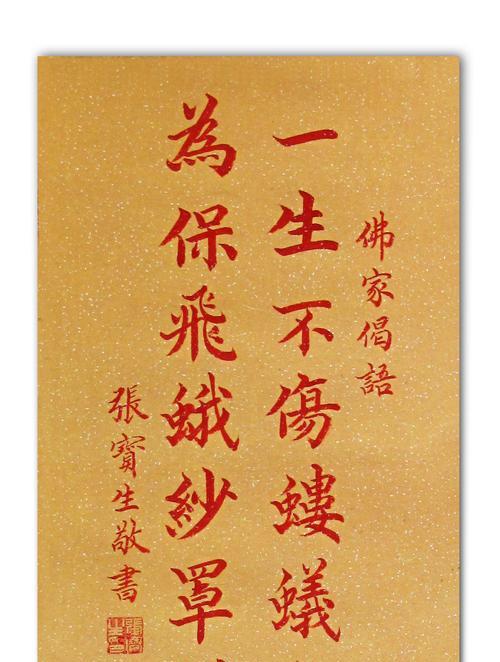 佛家偈語
一生不傷螻蟻
為保飛蛾紗罩
張寶生敬書